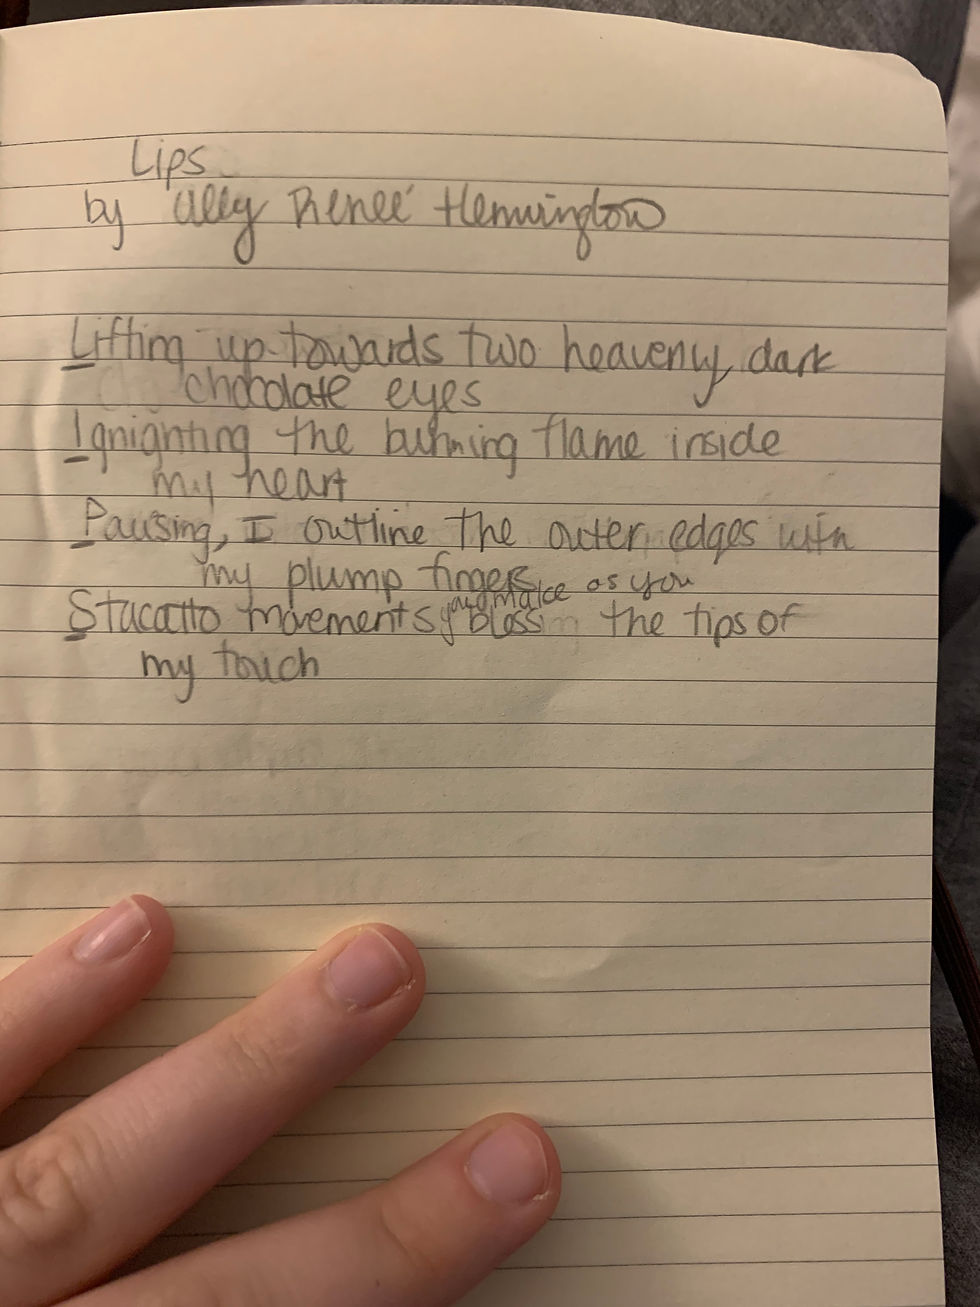 Lips
by Ally Renee' Hemington
Lifting up towards two heavenly dark
chocolate eyes
Ignighting the burning flame inside
my heart
Pausing, I outline the outer edges with
my plump fingers
you make as you
Stacatto movements bless the tips of
my touch